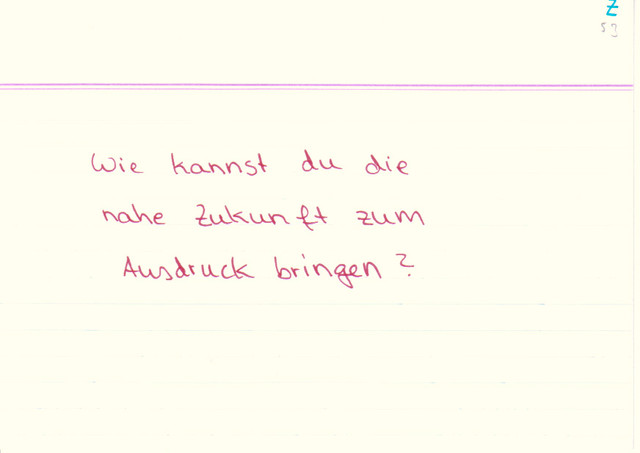 Z
53
Wie kannst du die
nahe Zukunft zum
Ausdruck bringen?